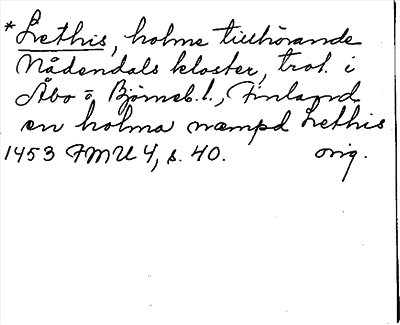 *Lethis, holme tillhörande
Nådendals kloster, trol. i
Åbo o. Björneb. l., Finland
en holma næmpd Lethis
1453 FMU 4, s. 40. orig.